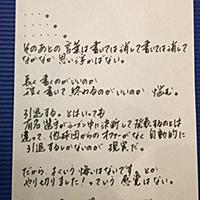 ・・・。
・・・。
そのあとの言葉は書いては消して書いては消して
なかなか思い浮かばない。
長く書くのがいいのか
短く書いて終わるのがいいのか 悩む。
引退する。とはいっても
有名選手がシーズン中に決断して発表するのとは
違って、他球団からのオファーがなく自動的に
引退するしかないのが現実だ。
だから よくいう 悔いはないです とか
やり切りました！っていう感覚はない。